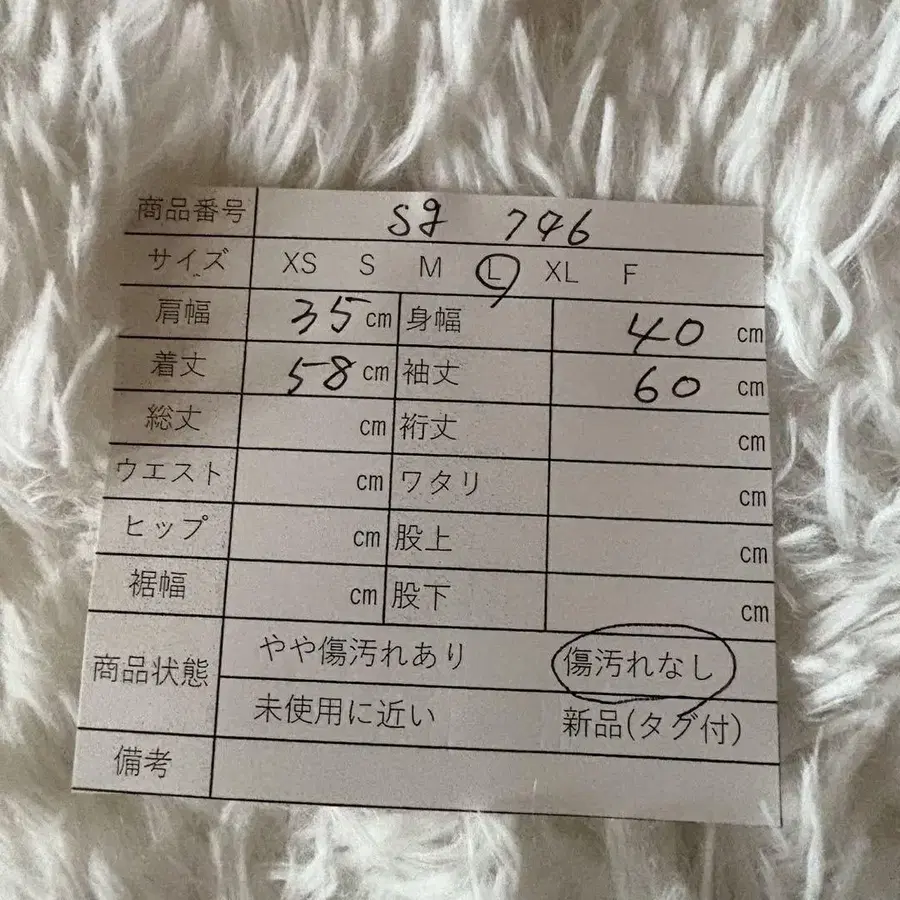 商品番号 sg 746
サイズ XS S M L XL F
肩幅 35 cm 身幅 40 cm
着丈 58 cm 袖丈 60 cm
総丈 cm 裄丈 cm
ウエスト cm ワタリ cm
ヒップ cm 股上 cm
裾幅 cm 股下 cm
商品状態 やや傷汚れあり 傷汚れなし
未使用に近い 新品(タグ付)
備考